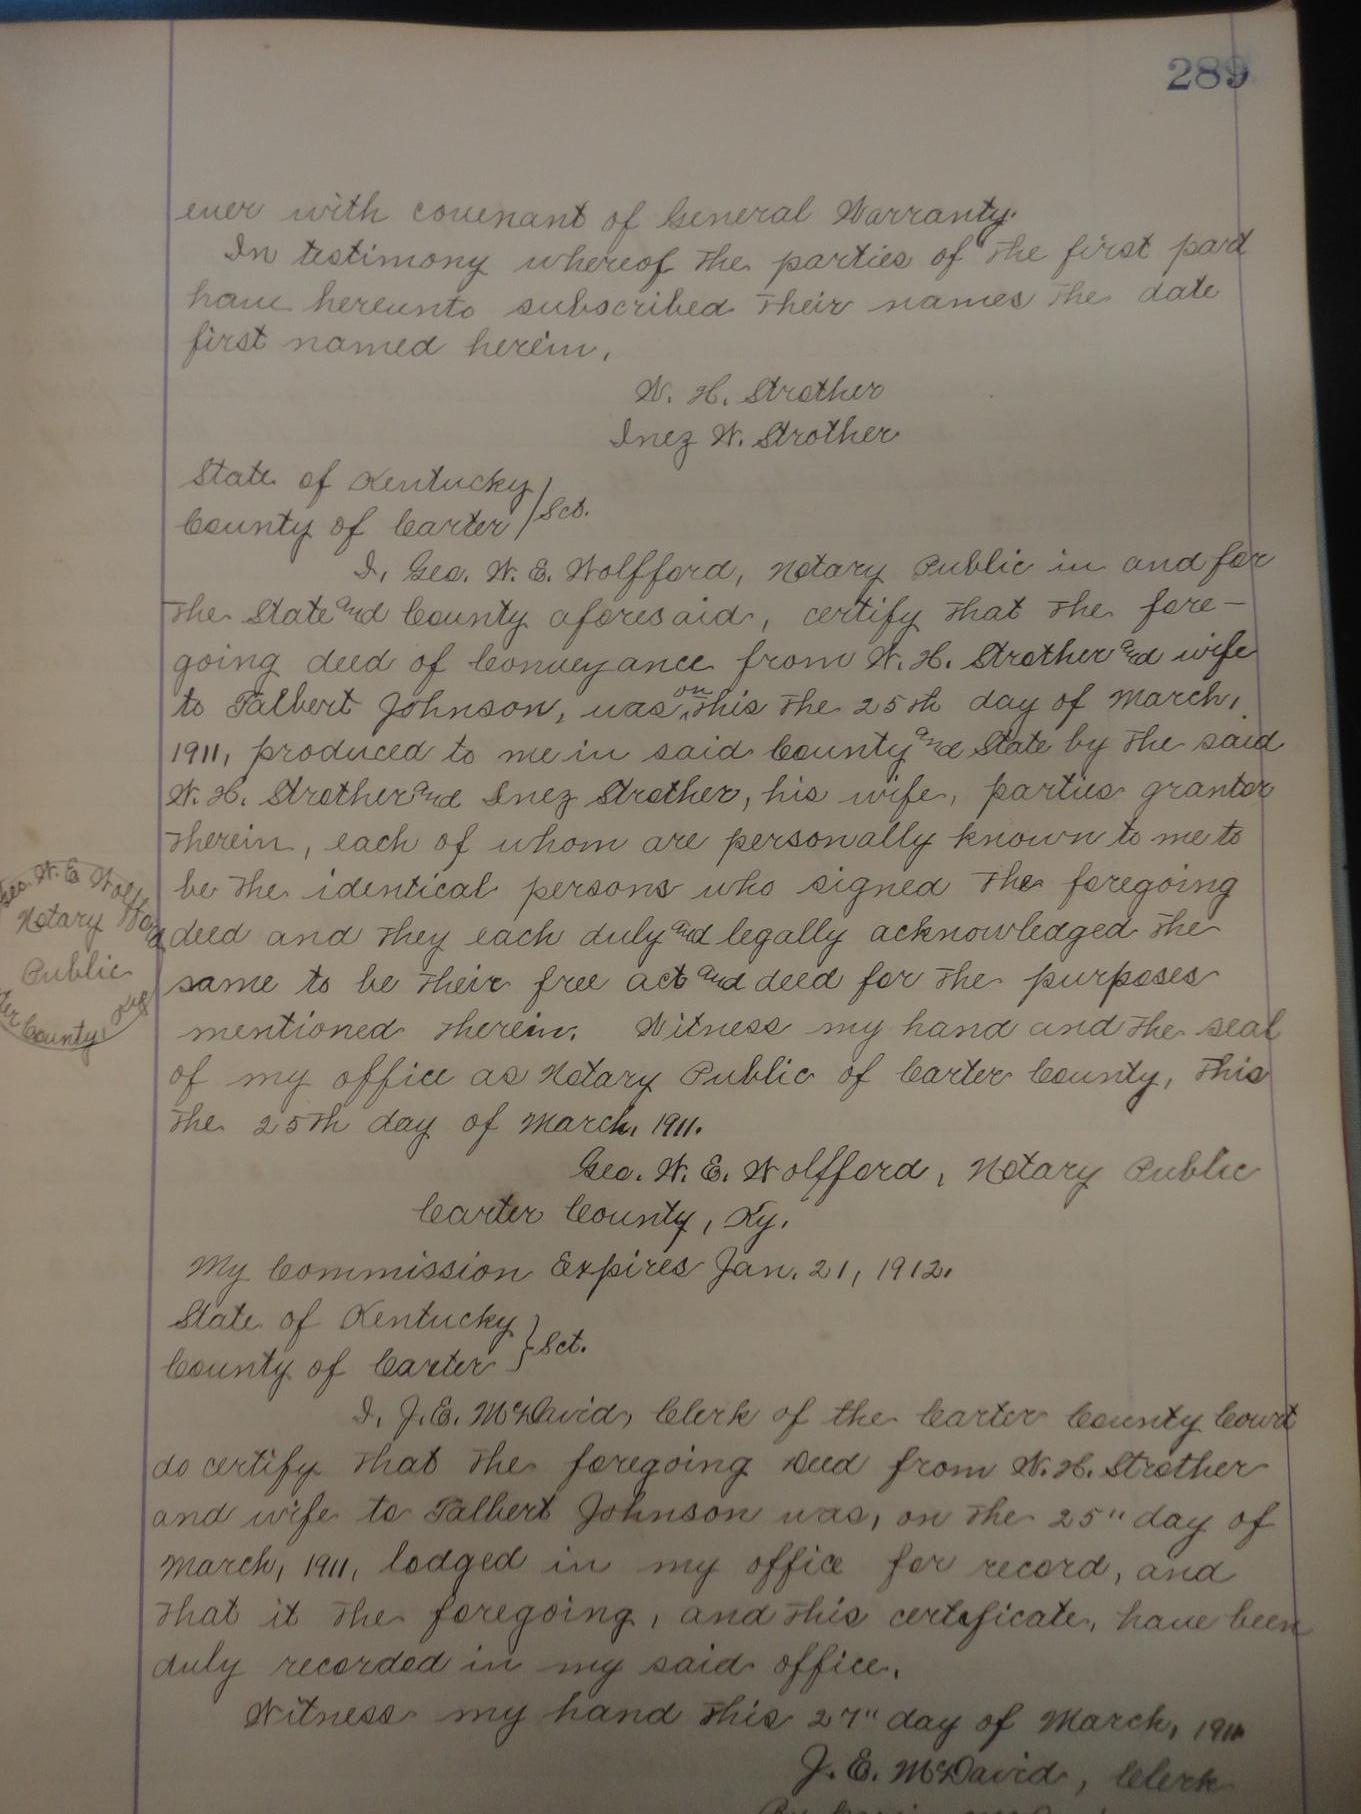 289
ever with covenant of General Warranty.
In testimony whereof the parties of the first part
have hereunto subscribed their names the date
first named herein.
W. H. Strother
Inez W. Strother
State of Kentucky
County of Carter } Sct.
I, Geo. W. E. Wolfford, Notary Public in and for
the State and County aforesaid, certify that the fore-
going deed of Conveyance from W. H. Strother and wife
to Talbert Johnson, was on this the 25th day of March,
1911, produced to me in said County and State by the said
W. H. Strother and Inez Strother, his wife, parties grantor
therein, each of whom are personally known to me to
be the identical persons who signed the foregoing
deed and they each duly and legally acknowledged the
same to be their free act and deed for the purposes
mentioned therein. Witness my hand and the seal
of my office as Notary Public of Carter County, this
the 25th day of March, 1911.
Geo. W. E. Wolfford
Notary
Public
County, Ky
Geo. W. E. Wolfford, Notary Public
Carter County, Ky.
My Commission Expires Jan. 21, 1912.
State of Kentucky
County of Carter } Sct.
I, J. E. McDavid, Clerk of the Carter County Court
do certify that the foregoing Deed from W. H. Strother
and wife to Talbert Johnson was, on the 25" day of
March, 1911, lodged in my office for record, and
that it the foregoing, and this certificate, have been
duly recorded in my said office.
Witness my hand this 27" day of March, 1911
J. E. McDavid, Clerk